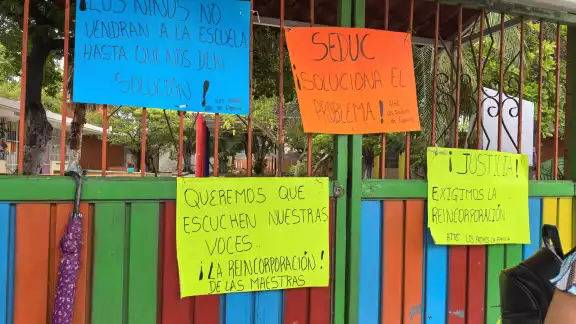 ¡LOS NIÑOS NO
VENDRAN A LA ESCUELA
HASTA QUE NOS DEN
SOLUCIÓN!
SEDUC
¡SOLUCIONA EL
PROBLEMA!
¡JUSTICIA!
EXIGIMOS LA
REINCORPORACIÓN
ATTE: LOS PADRES DE FAMILIA
QUEREMOS QUE
ESCUCHEN NUESTRAS
VOCES..
¡LA REINCORPORACIÓN!
DE LAS MAESTRAS